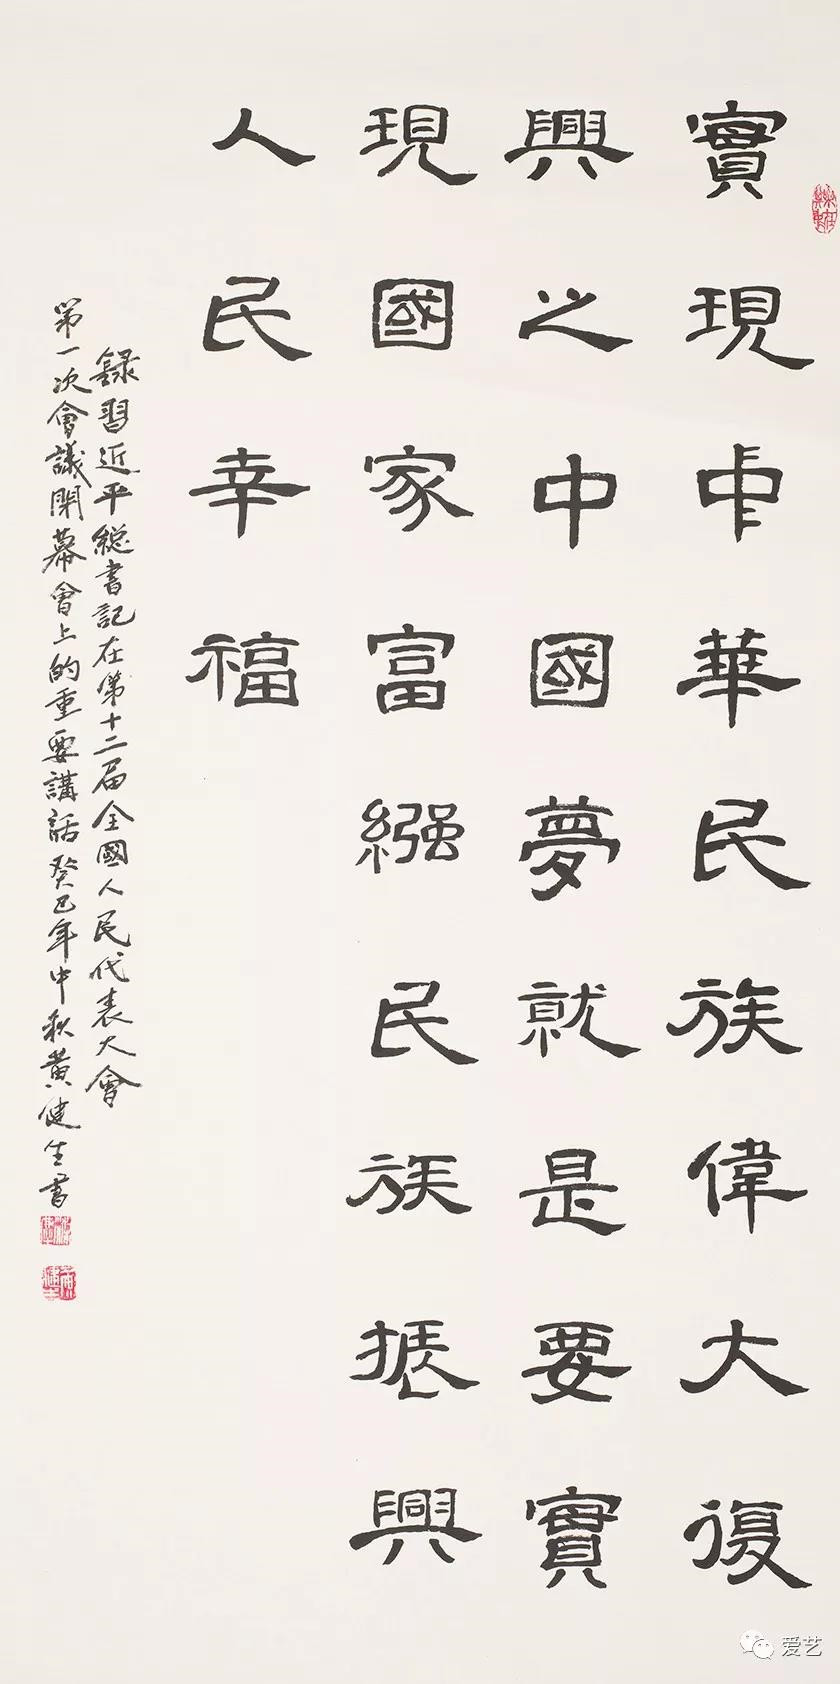 實現中華民族偉大復
興之中國夢就是要實
現國家富繈民族振興
人民幸福
錄習近平總書記在第十二届全國人民代表大會
第一次會議閉幕會上的重要講話癸巳年中秋黄健生書
爱艺